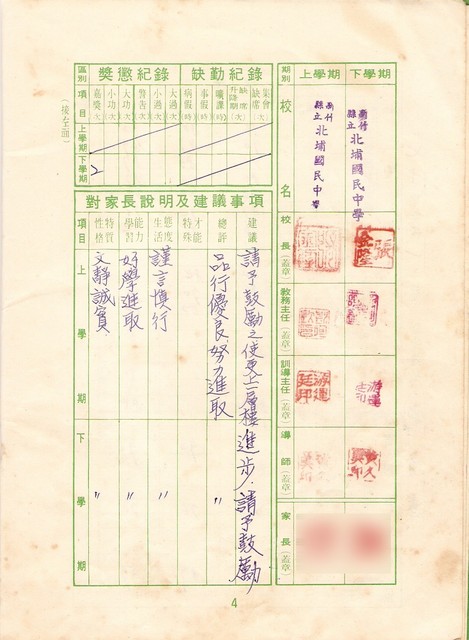 期別 上學期 下學期
校名
新竹縣立北埔國民中學
新竹縣立北埔國民中學
校長(蓋章)
張金隆
教務主任(蓋章)
訓導主任(蓋章)
導師(蓋章)
家長(蓋章)
區別 獎懲紀錄 缺勤紀錄
項目 嘉獎(次) 小功(次) 大功(次) 警告(次) 小過(次) 大過(次) 病假(時) 事假(時) 曠課(時) 升降旗缺席(次) 集會缺席(次)
上學期
下學期 2
(接左面)
對家長說明及建議事項
項目 性格特質 學習能力 生活態度 特殊才能 總評 建議
上學期 文靜誠實 好學進取 謹言慎行 品行優良努力進取 請予鼓勵之使更上一層樓
下學期 〃 〃 〃 〃 進步.請予鼓勵
4